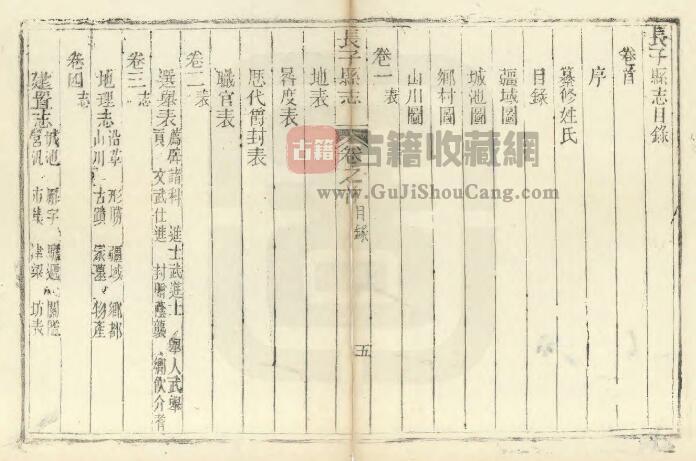 長子縣志目錄
卷首
序
纂修姓氏
目錄
疆域圖
城池圖
鄉村圖
山川圖
卷一 表
長子縣志
卷之首
目錄
五
地表
晷度表
歷代簡封表
職官表
卷二 表
選舉表 薦辟諸科 進士武進士 舉人武舉
貢 文武仕進 封贈蔭襲 鄉飲介耆
卷三 志
地理志 沿革 形勝 疆域 鄉都
山川 古蹟 冢墓 物產
卷四 志
建置志 城池 廨宇 關隘
營汛 市集 津梁 坊表
古籍
古籍收藏網
www.GuJiShouCang.com